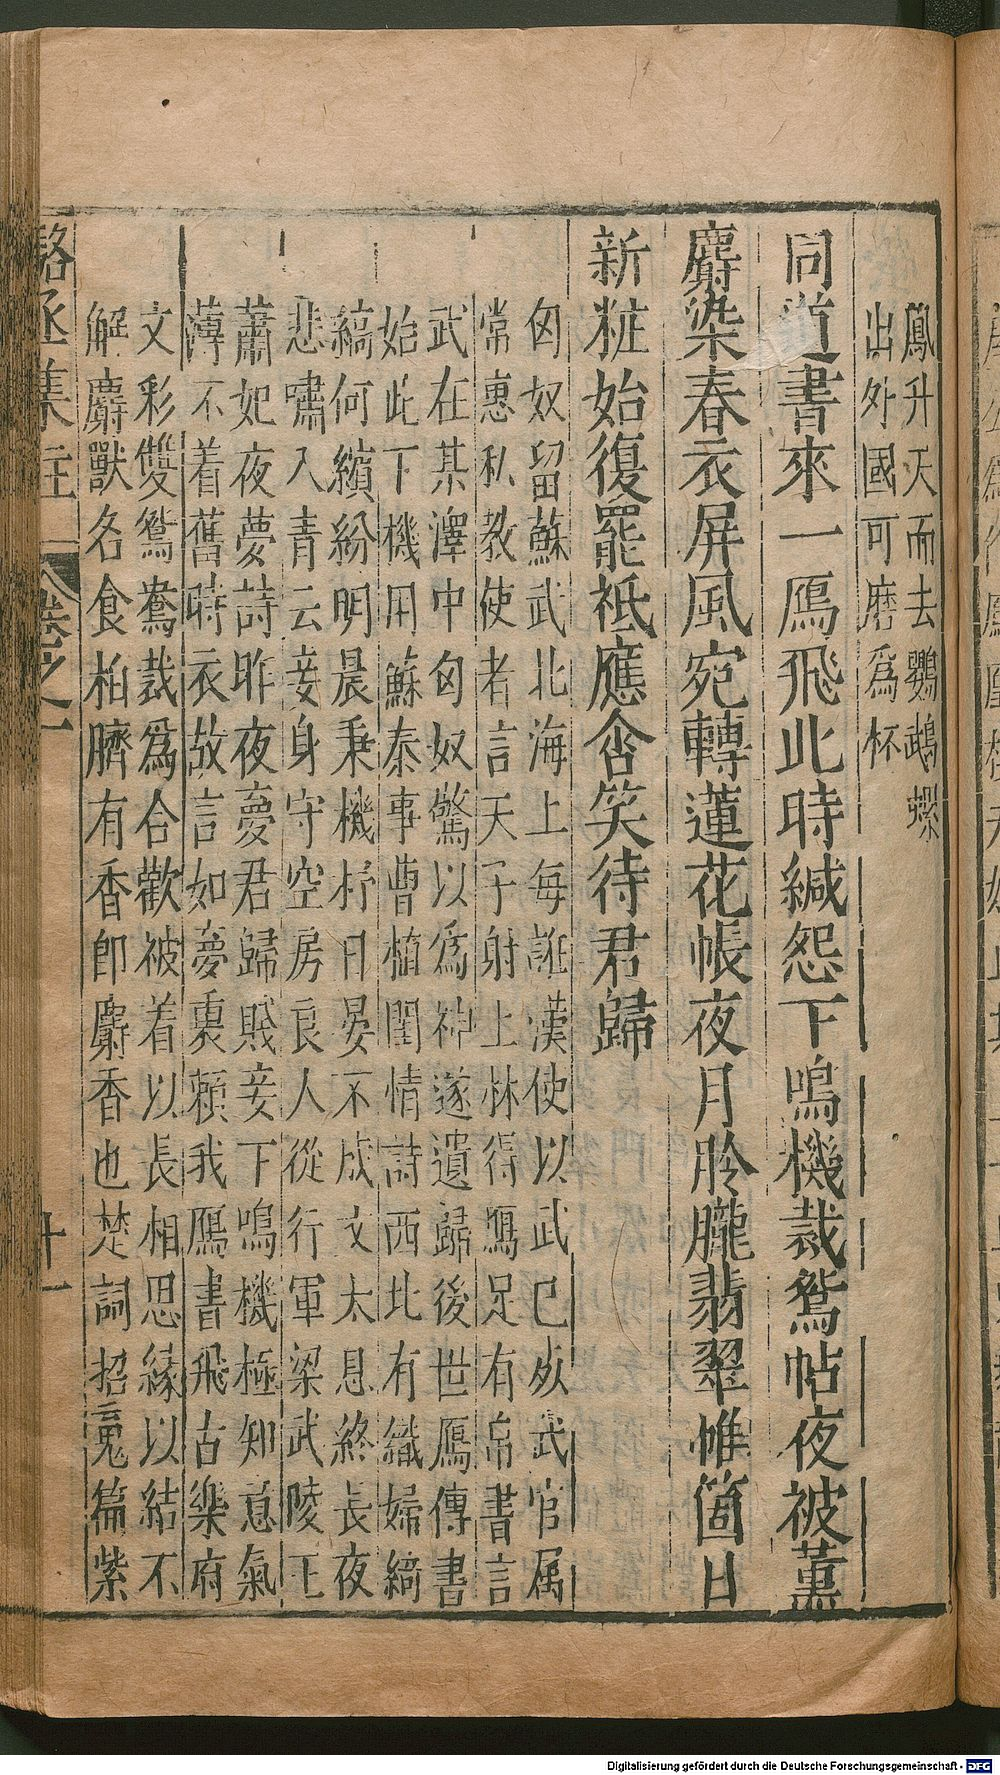 鳳升天而去鸚鵡螺
出外國可磨爲杯
同道書來一鴈飛此時緘怨下鳴機裁鴛帖夜被薰
麝染春衣屏風宛轉蓮花帳夜月朎朧翡翠帷箇日
新粧始復罷袛應含笑待君歸
匈奴留蘇武北海上每誑漢使以武已死武官属
常惠私教使者言天子射上林得鴈足有帛書言
武在某澤中匈奴驚以爲神遂遺歸後世鴈傳書
始此下機用蘇泰事曹植閨情詩西北有織婦縞
縞何繽紛明晨秉機杼日晏不成文太息終長夜
悲嘯入青云妾身守空房良人從行軍梁武陵王
蕭妃夜夢詩昨夜夢君歸賤妾下鳴機極知意氣
薄不着舊時衣故言如夢裏賴我鴈書飛古樂府
文彩雙鴛鴦裁爲合歡被着以長相思緣以結不
解麝獸名食柏臍有香卽麝香也楚詞招䰟篇紫
駱丞集註 卷之一 十一
Digitalisierung gefördert durch die Deutsche Forschungsgemeinschaft - DFG